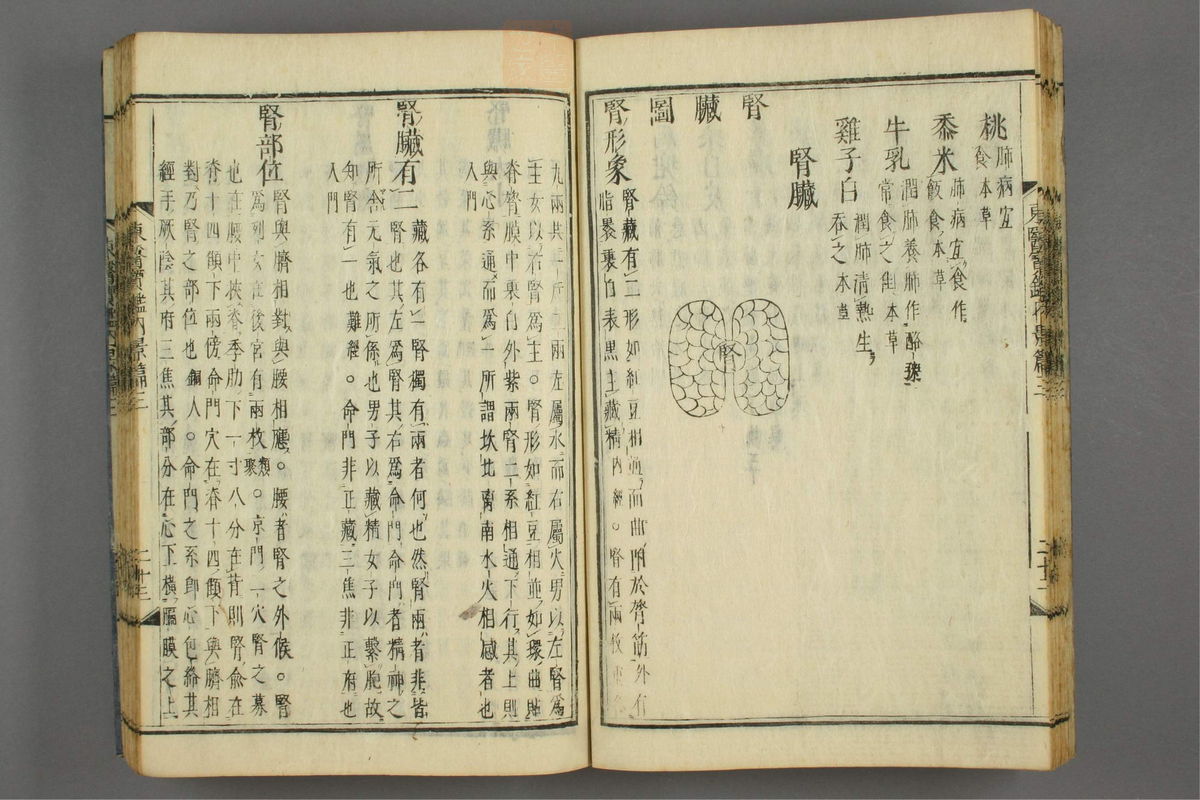 桃 肺病宜
食 本草
黍米 肺病宜食作
飯食 本草
牛乳 潤肺養肺作酪
常食之佳 本草
雞子白 潤肺清熱生
吞之 本草
腎臟
腎
臟
圖
腎
腎形象 腎藏有二形如紅豆相並而曲附於膂筋外有
脂裹裏白表黑主藏精 內經○腎有兩枚重各
九兩共一斤二兩左屬水而右屬火男以左腎爲
主女以右腎爲主○腎形如紅豆相並如環曲貼
脊膂膜中裏白外紫兩腎二系相通下行其上則
與心系通而爲一所謂坎北离南水火相感者也
入門
腎臟有二 藏各有一腎獨有兩者何也然腎兩者非皆
腎也其左爲腎其右爲命門命門者精神之
所舍元氣之所係也男子以藏精女子以繫胞故
知腎有一也 難經○命門非正藏三焦非正府也
入門
腎部位 腎與臍相對與腰相應○腰者腎之外候○腎
爲列女在後宮有兩枚 類聚○京門二穴腎之募
也在腰中挾脊季肋下一寸八分在背則腎兪在
脊十四顀下兩傍命門穴在脊十四顀下與臍相
對乃腎之部位也 銅人○命門之系卽心包絡其
經手厥陰其府三焦其部分在心下橫膈膜之上
東醫寶鑑內景篇三
二十三